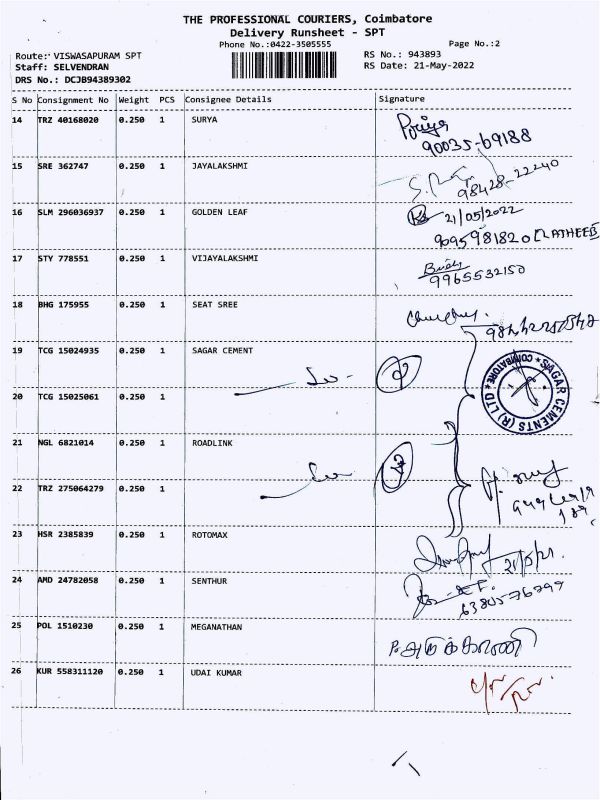 THE PROFESSIONAL COURIERS, Coimbatore
Delivery Runsheet - SPT
Phone No.:0422-3505555
Page No.:2
Route: VISWASAPURAM SPT
RS No.: 943893
Staff: SELVENDRAN
RS Date: 21-May-2022
DRS No.: DCJB94389302
S No Consignment No Weight PCS Consignee Details Signature
14 TRZ 40168020 0.250 1 SURYA
Priya
90035-69188
15 SRE 362747 0.250 1 JAYALAKSHMI
98428-22240
16 SLM 296036937 0.250 1 GOLDEN LEAF
21/05/2022
9095981820 [LATHEEB]
17 STY 778551 0.250 1 VIJAYALAKSHMI
9965532150
18 BHG 175955 0.250 1 SEAT SREE
19 TCG 15024935 0.250 1 SAGAR CEMENT
SAGAR CEMENTS (R) LTD * COIMBATORE *
20 TCG 15025061 0.250 1
21 NGL 6821014 0.250 1 ROADLINK
22 TRZ 275064279 0.250 1
23 HSR 2385839 0.250 1 ROTOMAX
24 AMD 24782058 0.250 1 SENTHUR
6380576799
25 POL 1510230 0.250 1 MEGANATHAN
26 KUR 558311120 0.250 1 UDAI KUMAR